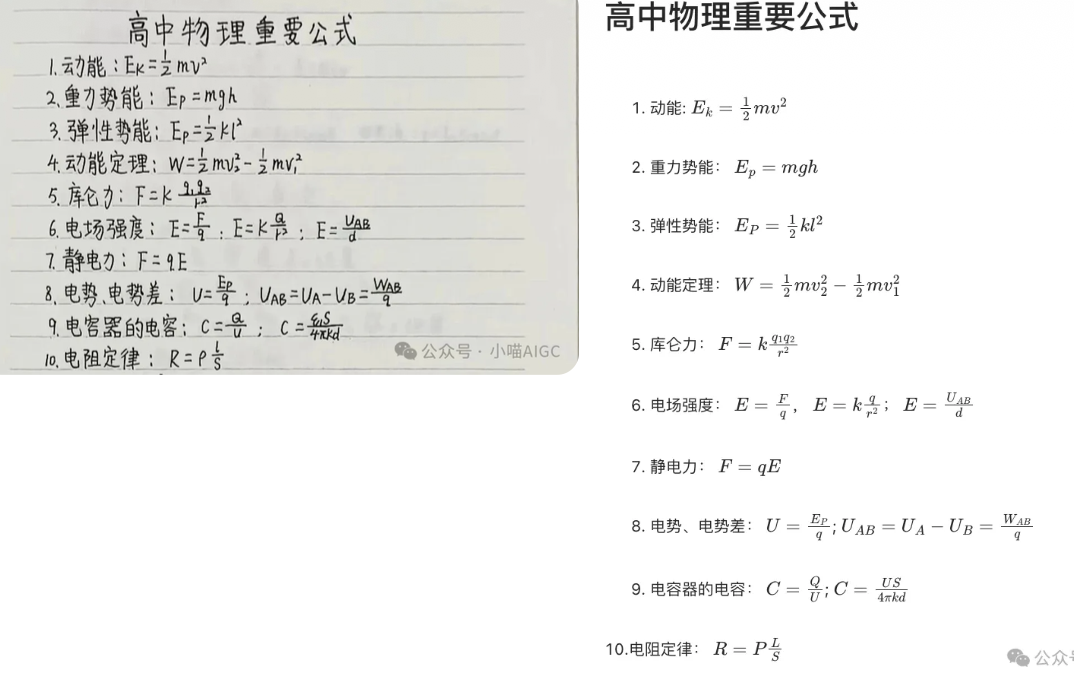 高中物理重要公式
1.动能:Eₖ=½mv²
2.重力势能:Eₚ=mgh
3.弹性势能:Eₚ=½kl²
4.动能定理:W=½mv₂²-½mv₁²
5.库仑力:F=k q₁q₂/r²
6.电场强度:E=F/q;E=k Q/r²;E=U_AB/d
7.静电力:F=qE
8.电势、电势差:U=Eₚ/q;U_AB=U_A-U_B=W_AB/q
9.电容器的电容:C=Q/U;C=εS/4πkd
10.电阻定律:R=ρ l/S
公众号·小喵AIGC
高中物理重要公式
1. 动能: Eₖ = ½mv²
2. 重力势能: Eₚ = mgh
3. 弹性势能: E_P = ½kl²
4. 动能定理: W = ½mv₂² − ½mv₁²
5. 库仑力: F = k q₁q₂/r²
6. 电场强度: E = F/q, E = k q/r²; E = U_AB/d
7. 静电力: F = qE
8. 电势、电势差: U = E_P/q; U_AB = U_A − U_B = W_AB/q
9. 电容器的电容: C = Q/U; C = US/4πkd
10.电阻定律: R = P L/S
公众